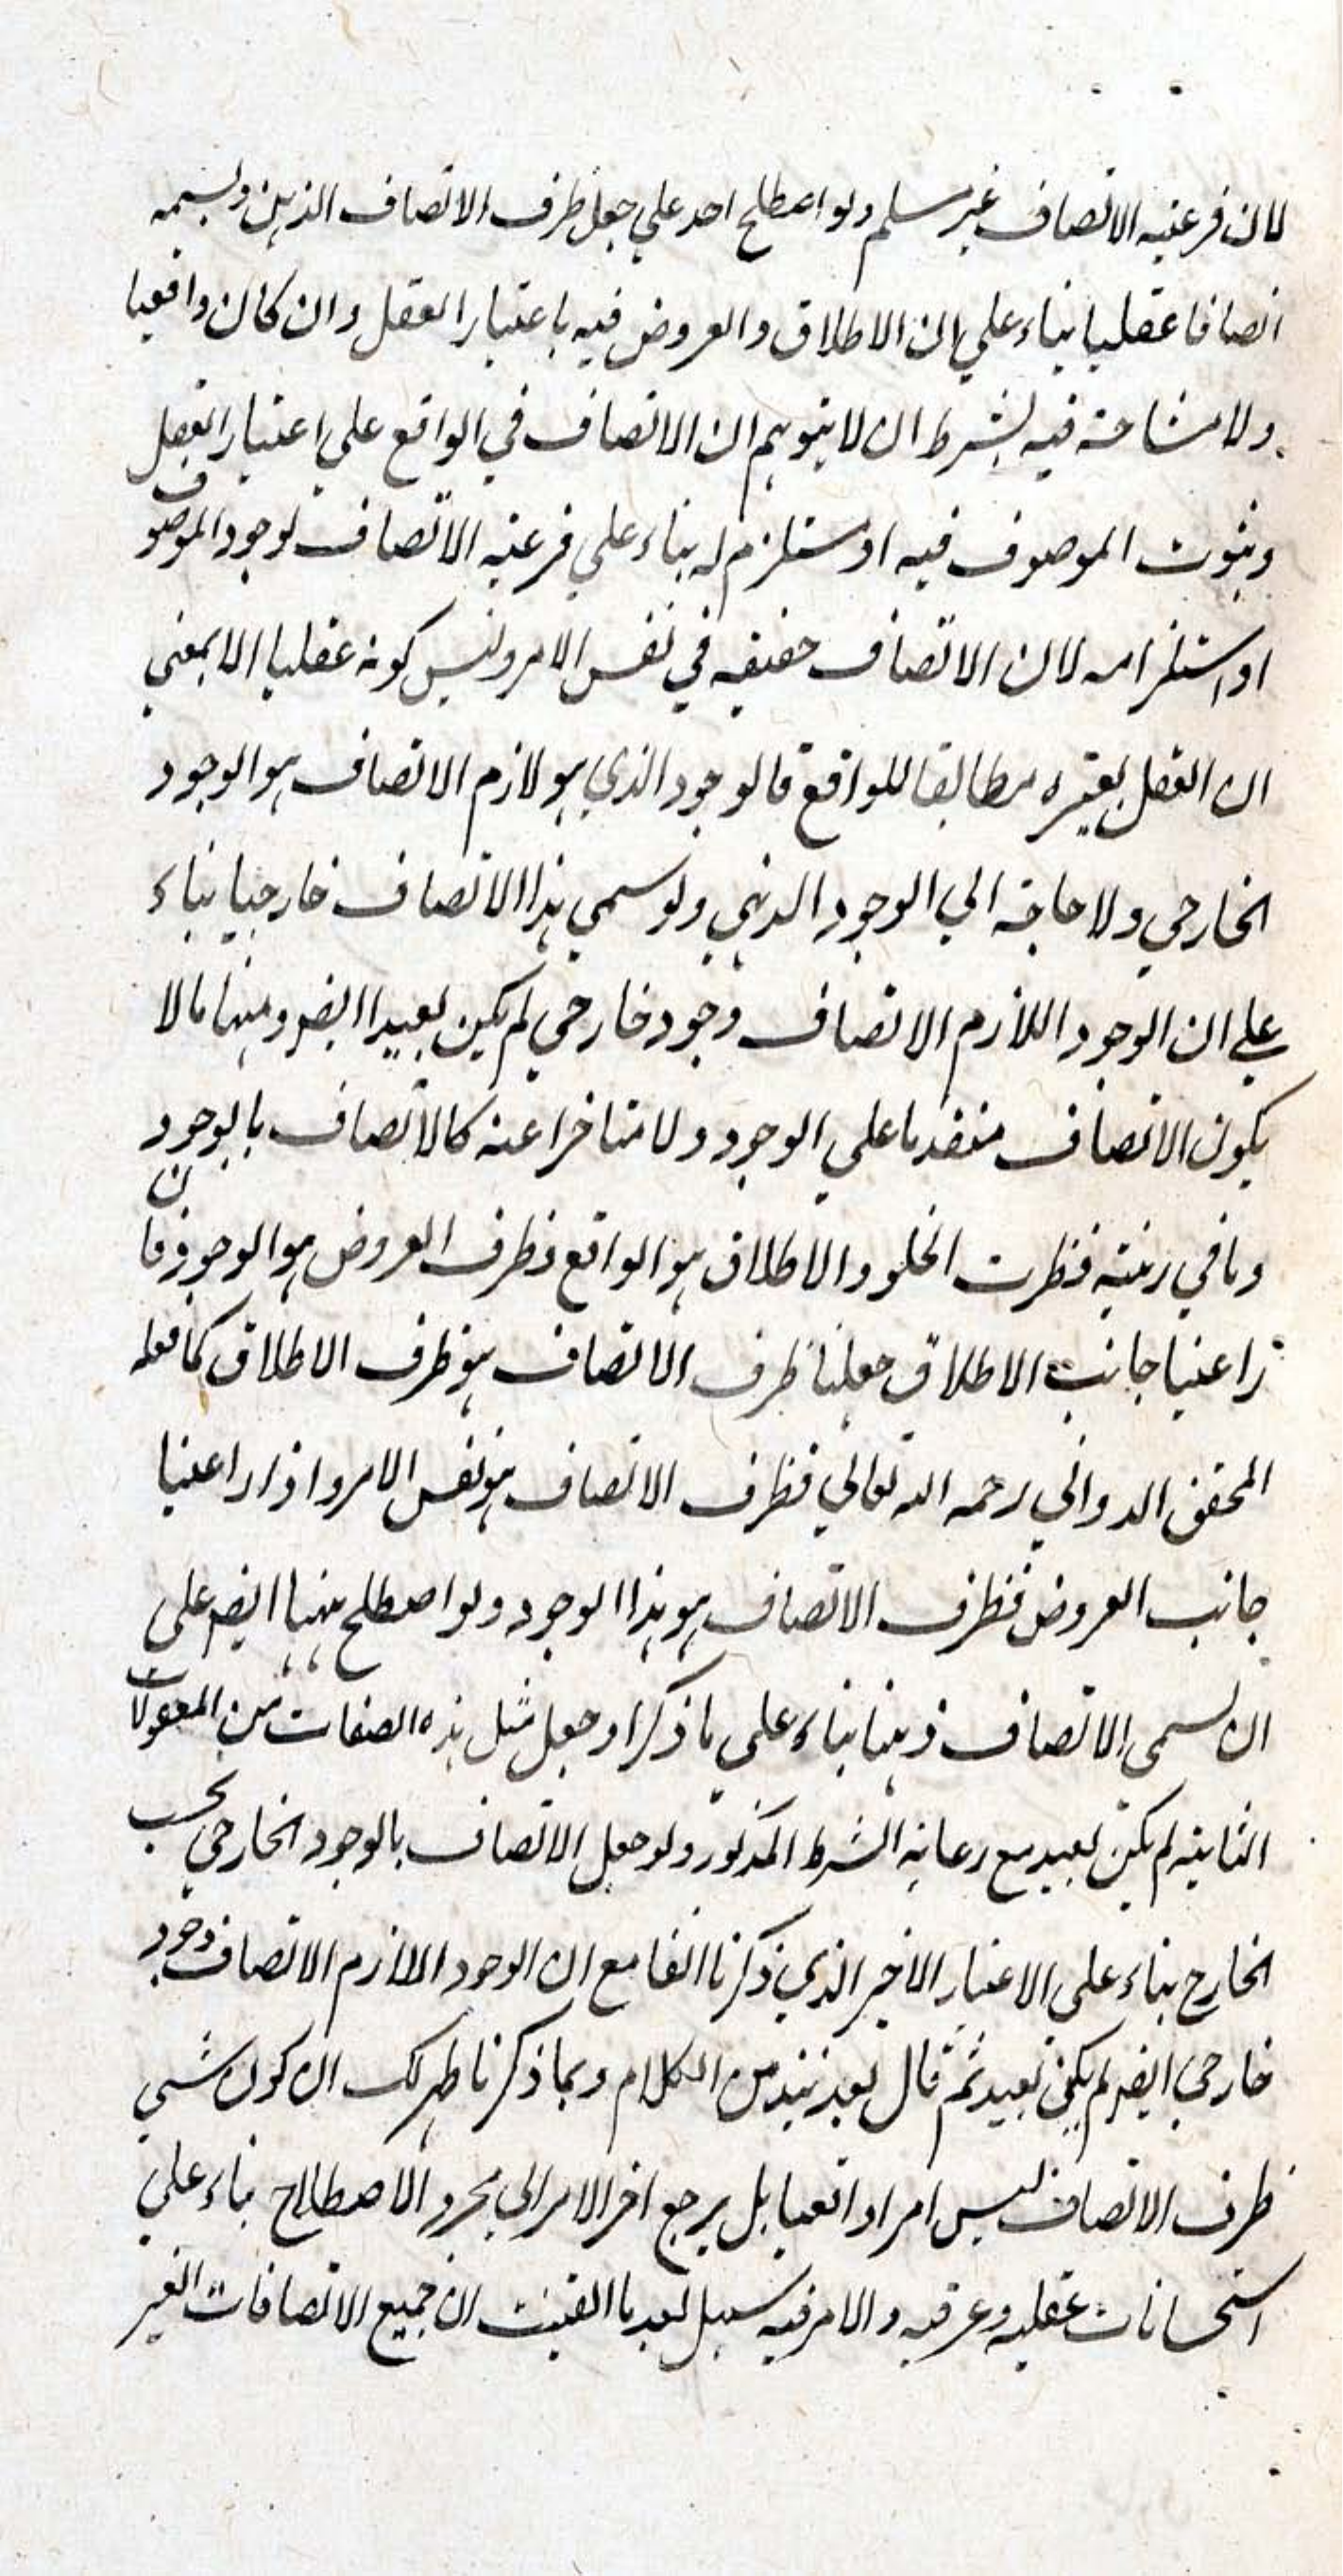 لان فرعيه الاتصاف غير مسلم ولو اصطلح احد علي جعل ظرف الاتصاف الذهن ويسميه
اتصافا عقليا بناء علي ان الاطلاق والعروض فيه باعتبار العقل وان كان واقعيا
ولا مشاحة فيه بشرط ان لا يتوهم ان الاتصاف في الواقع علي اعتبار العقل
وثبوت الموصوف فيه او مستلزم له بناء علي فرعيه الاتصاف لوجود الموصوف
او استلزامه لان الاتصاف حقيقه في نفس الامر وليس كونه عقليا الا بمعني
ان العقل يعتبره مطابقا للواقع فالوجود الذي هو لازم الاتصاف هو الوجود
الخارجي ولا حاجة الي الوجود الذهني ولو سمي هذا الاتصاف خارجيا بناء
علي ان الوجود اللازم الاتصاف وجود خارجي لم يكن بعيدا ايضو ومنها ما لا
يكون الاتصاف متقدما علي الوجود ولا متاخرا عنه كالاتصاف بالوجود
وما في رتبته فظرف الخلو والاطلاق هو الواقع وظرف العروض هو الوجود فان
راعينا جانب الاطلاق جعلنا ظرف الاتصاف هو ظرف الاطلاق كما فعله
المحقق الدواني رحمه الله تعالي فظرف الاتصاف هو نفس الامر واذا راعينا
جانب العروض فظرف الاتصاف هو هذا الوجود ولو اصطلح ههنا ايضو علي
ان يسمي الاتصاف ذهنيا بناء علي ما ذكر او جعل مثل هذه الصفات من المعقولات
الثانيه لم يكن بعيد مع رعاية الشرط المذكور ولو جعل الاتصاف بالوجود الخارجي بحسب
الخارج بناء علي الاعتبار الاخير الذي ذكرنا انفا مع ان الوجود اللازم الاتصاف وجود
خارجي ايضو لم يكن بعيد ثم قال بعد نبذ من الكلام وبما ذكرنا ظهر لك ان كون شي
ظرف الاتصاف ليس امرا واقعيا بل يرجع اخر الامر الي مجرد الاصطلاح بناء علي
استحسانات عقليه وعرفيه والامر فيه سهل بعد ما اتقنت ان جميع الاتصافات الغير